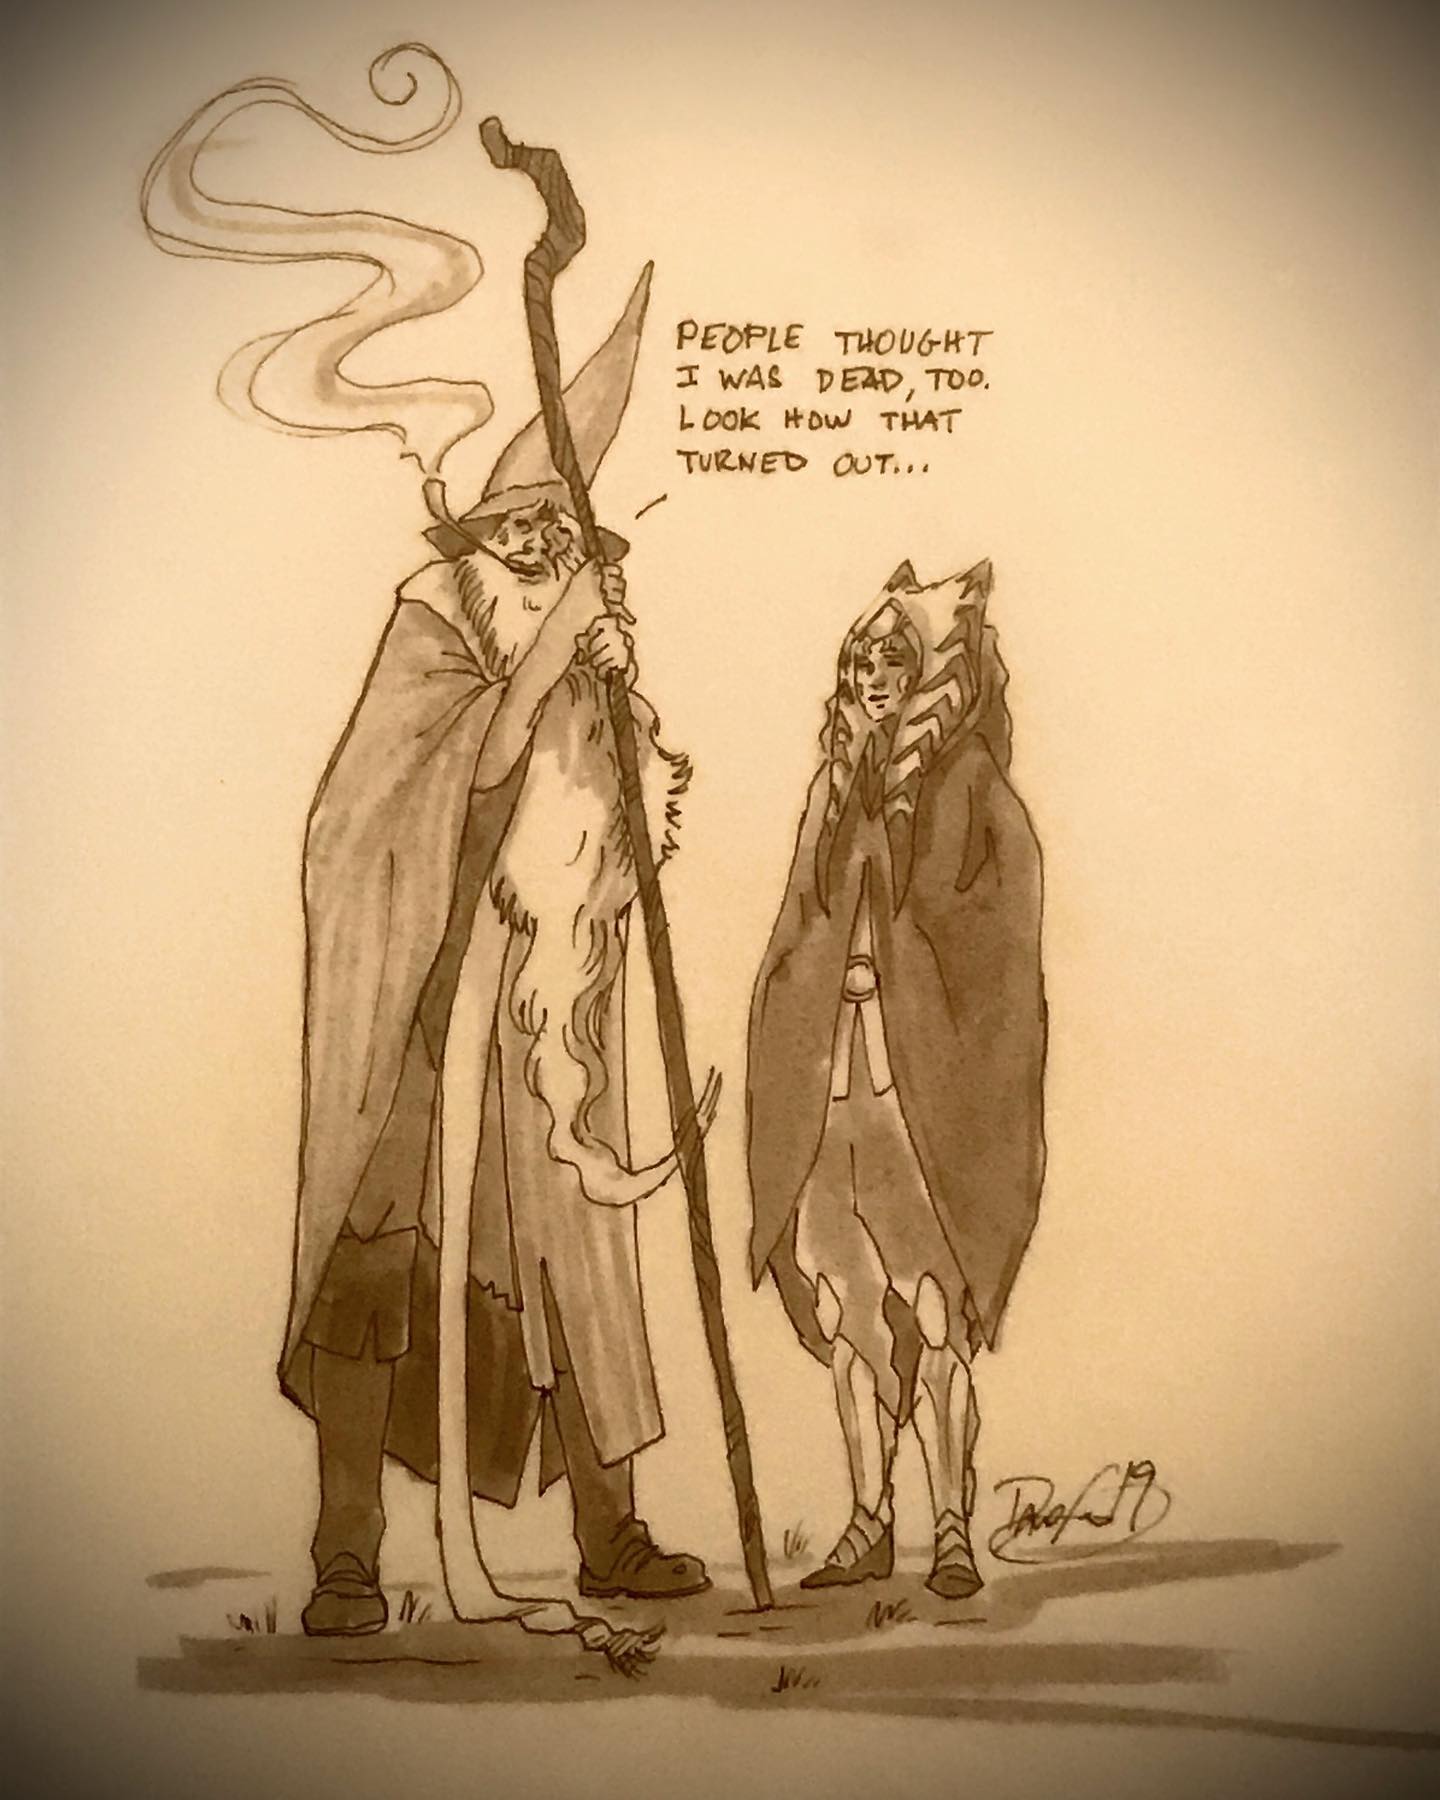 PEOPLE THOUGHT
I WAS DEAD, TOO.
LOOK HOW THAT
TURNED OUT...